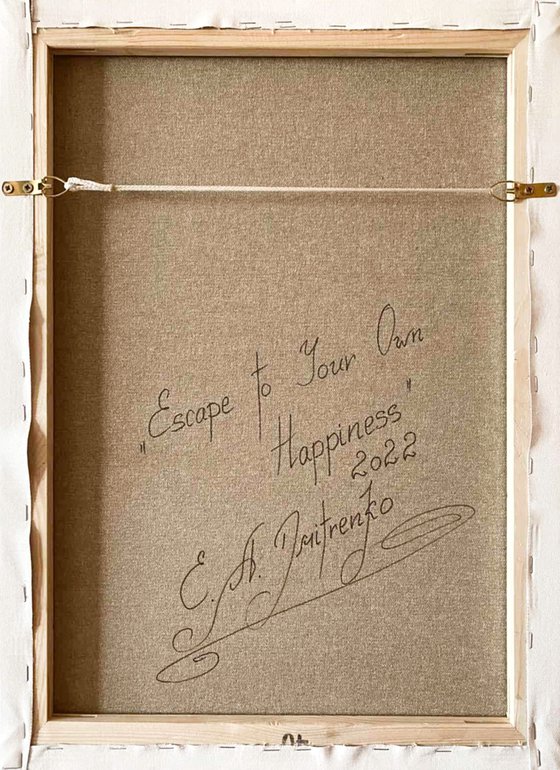 „Escape to Your Own
Happiness"
2022
E. A. Dmitrenko